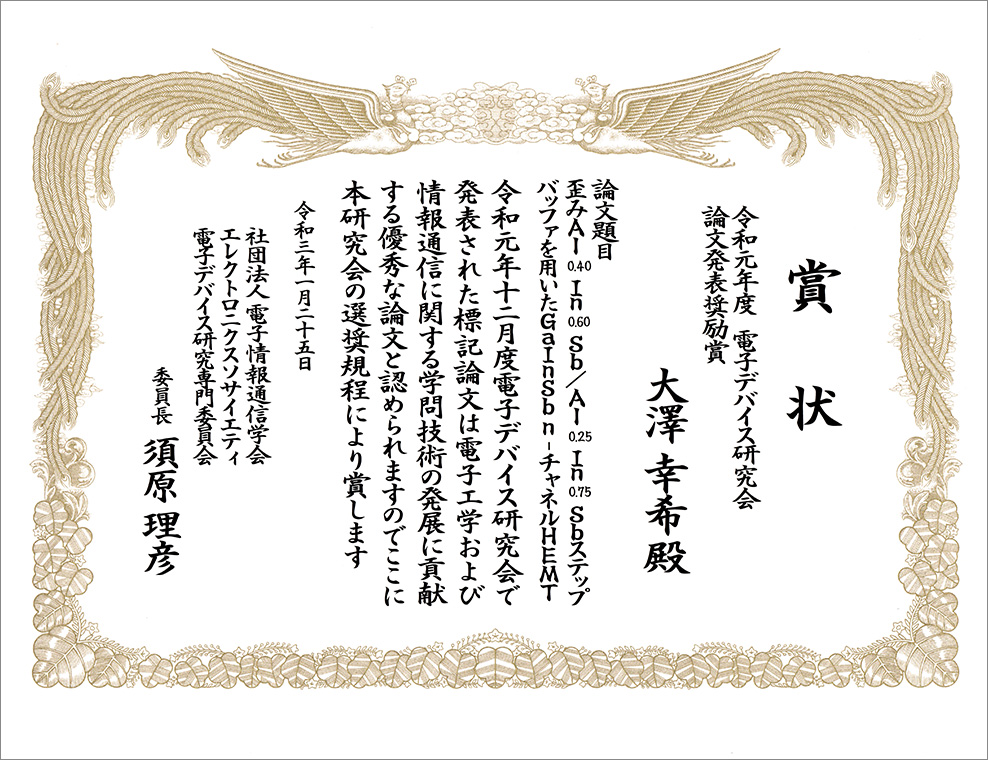 賞状
令和元年度 電子デバイス研究会
論文発表奨励賞
大澤 幸希 殿
論文題目
歪みAl0.40In0.60Sb/Al0.25In0.75Sbステップ
バッファを用いたGaInSb n-チャネルHEMT
令和元年十二月度電子デバイス研究会で
発表された標記論文は電子工学および
情報通信に関する学問技術の発展に貢献
する優秀な論文と認められますのでここに
本研究会の選奨規程により賞します
令和三年一月二十五日
社団法人 電子情報通信学会
エレクトロニクスソサイエティ
電子デバイス研究専門委員会
委員長 須原 理彦